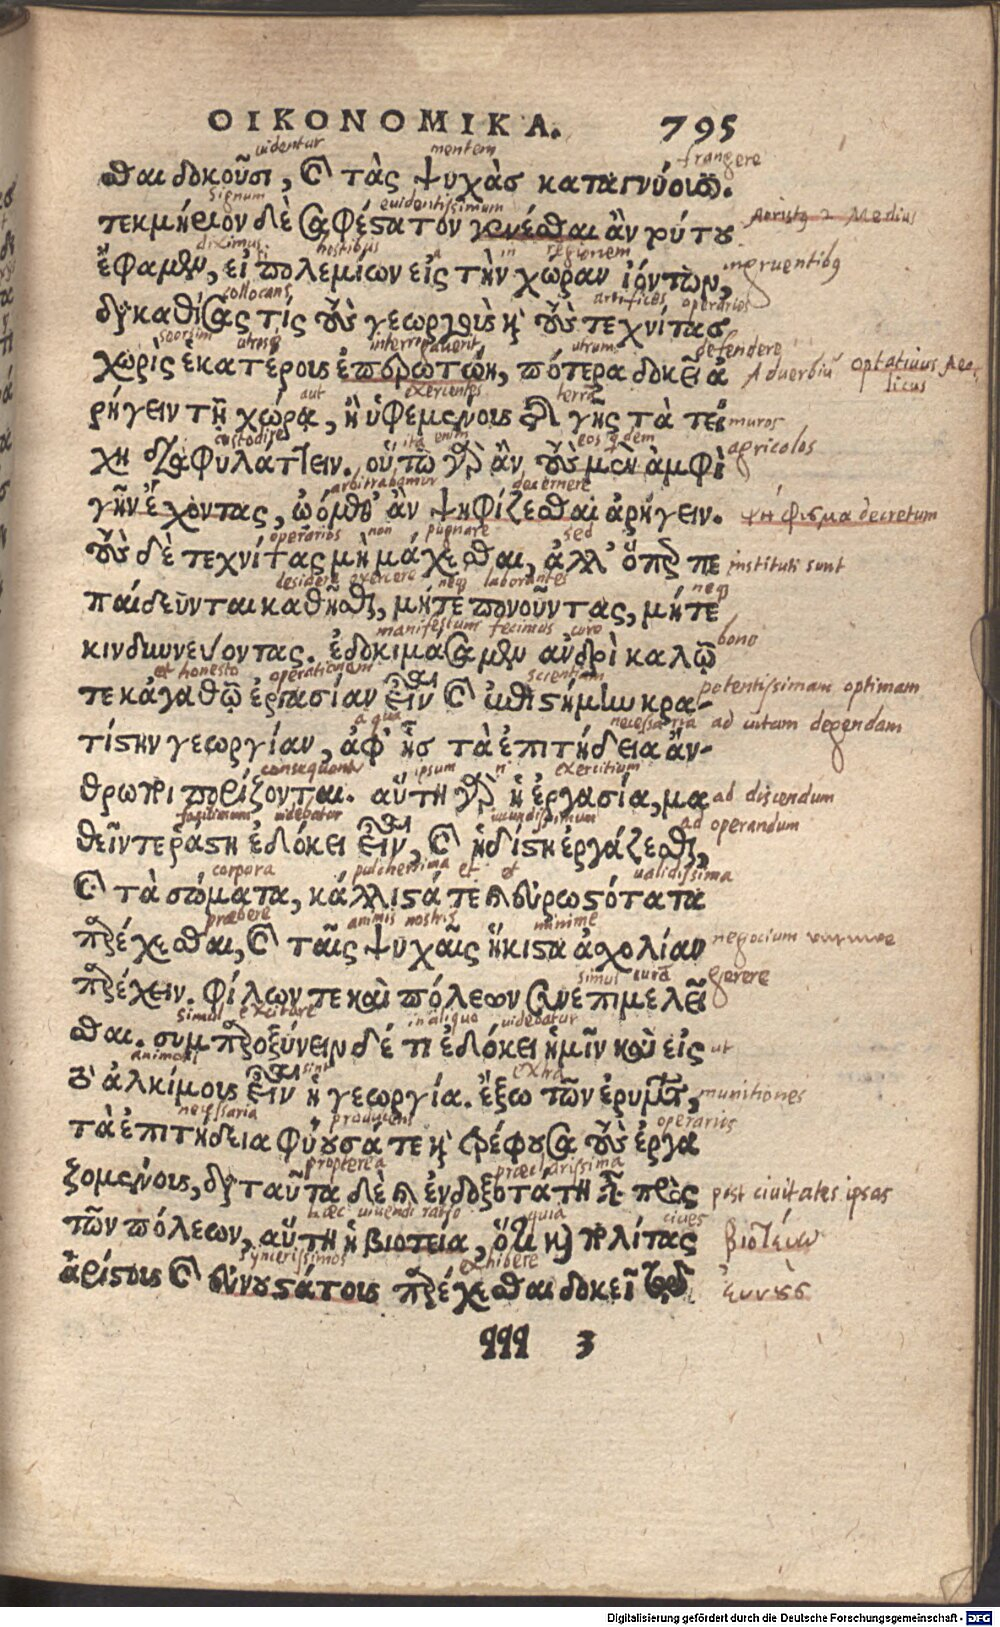 ΟΙΚΟΝΟΜΙΚΑ. 795
uidentur mentem frangere
σθαι δοκοῦσι, καὶ τὰς ψυχὰς καταγνύουσιν.
signum euidentissimum
τεκμήριον δὲ σαφέστατον γενέσθαι ἂν τούτου Aoristg 2 Medius
diximus hostibus in regionem
ἔφαμεν, εἰ πολεμίων εἰς τὴν χώραν ἰόντων, ingruentibg
collocans artifices operarios
διακαθίσας τίς τοὺς γεωργοὺς καὶ τοὺς τεχνίτας
seorsim utrosq interrogauerit utrum defendere
χωρὶς ἑκατέρους ἐπερωτώη, πότερα δοκεῖ ἀ Aduerbiū optatiuus Aeo,
licus
aut exercentes terra
ρήγειν τῇ χώρᾳ, ἢ ὑφεμένους ἐκ γῆς τὰ τεί muros
custodire ita enim eos qdem agricolos
χη διαφυλάττειν. οὕτω γὰρ ἂν τοὺς μὲν ἀμφὶ
arbitrabamur decernere
γῆν ἔχοντας, ᾠόμεθ' ἂν ψηφίζεσθαι ἀρήγειν. ψήφισμα decretum
operarios non pugnare sed
τοὺς δὲ τεχνίτας μὴ μάχεσθαι, ἀλλ' ὅπερ πε instituti sunt
desidere exercere neq laborantes neq
παίδευνται καθῆσθαι, μήτε πονοῦντας, μήτε
manifestum fecimus uiro bono
κινδυνεύοντας. ἐδοκιμάσαμεν ἀνδρὶ καλῷ
et honesto operationem scientiam
τε κἀγαθῷ ἐργασίαν εἶναι καὶ ἐπιστήμην κρα- potentissimam optimam
a qua necessaria ad uitam degendam
τίστην γεωργίαν, ἀφ' ἧς τὰ ἐπιτήδεια ἄν-
consequantr ipsum exercitium
θρωποι πορίζονται. αὕτη γὰρ ἡ ἐργασία, μα ad discendum
facillimum uidebatur iucundissimum ad operandum
θεῖν τε ῥᾴστη ἐδόκει εἶναι, καὶ ἡδίστη ἐργάζεσθαι,
corpora pulcherrima et et ualidissima
καὶ τὰ σώματα, κάλλιστά τε καὶ εὐρωστότατα
præbere animis nostris minime
παρέχεσθαι, καὶ ταῖς ψυχαῖς ἥκιστα ἀσχολίαν negocium
simul curā gerere
παρέχειν. φίλων τε καὶ πόλεων συνεπιμελεῖ
simul excitare in aliquo uidebatur
σθαι. συμπαροξύνειν δέ τι ἐδόκει ἡμῖν καὶ εἰς ut
animosi sint extra
τὸ ἀλκίμους εἶναι ἡ γεωργία. ἔξω τῶν ἐρυμάτων, munitiones
necessaria producens operarios
τὰ ἐπιτήδεια φύουσά τε καὶ τρέφουσα τοὺς ἐργα
propterea præclarissima
ζομένους, διὰ ταῦτα δὲ καὶ ἐνδοξοτάτη εἶναι πρὸς post ciuitates ipsas
hæc uiuendi ratio quia ciues
τῶν πόλεων, αὕτη ἡ βιοτεία, ὅτι καὶ πολίτας βιοτεύω
syncerissimos exhibere
ἀρίστους καὶ εὐνουστάτους παρέχεσθαι δοκεῖ τῷ εὐνοὺς
qqq 3
Digitalisierung gefördert durch die Deutsche Forschungsgemeinschaft - DFG